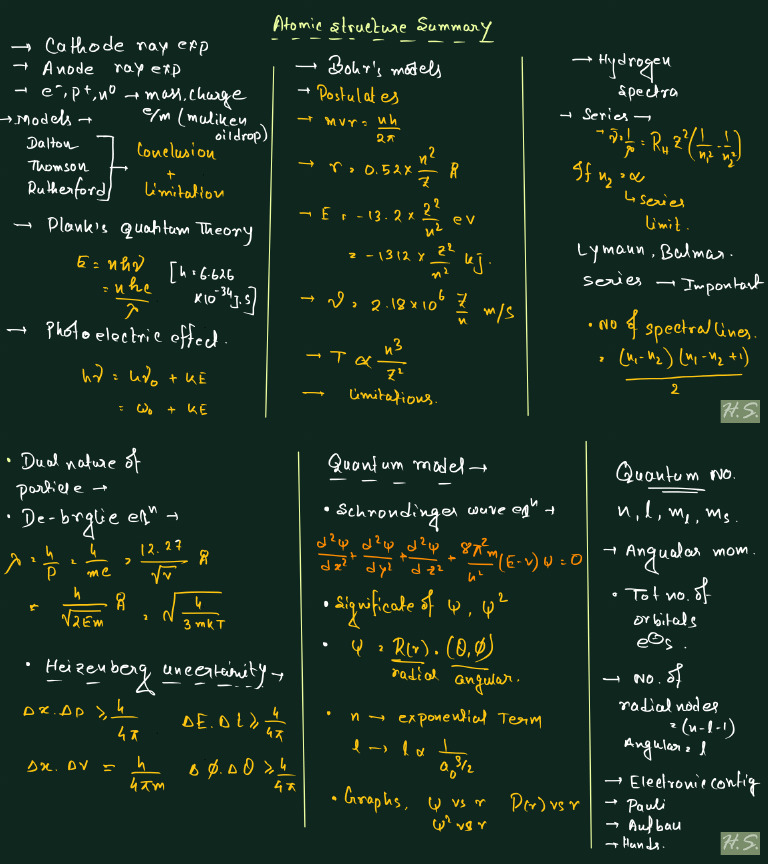 Atomic structure Summary
→ Cathode ray exp
→ Anode ray exp
→ e⁻, p⁺, n⁰ → mass, charge
e/m (muliken
oildrop)
→ Models →
Dalton
Thomson
Rutherford
Conclusion
+
Limitation
→ Plank's quantum Theory
E = nhν
= nhc/λ
[h = 6.626
×10⁻³⁴ J.s]
→ Photoelectric effect.
hν = hν₀ + KE
= ω₀ + KE
→ Bohr's models
→ Postulates
→ mvr = nh/2π
→ r = 0.52 × n²/Z Å
→ E = -13.2 × Z²/n² ev
= -1312 × Z²/n² kj.
→ v = 2.18×10⁶ Z/n m/s
→ T ∝ n³/Z²
→ limitations.
→ Hydrogen
spectra
→ Series →
→ ν̄ = 1/λ = R_H Z² (1/n₁² - 1/n₂²)
If n₂ = ∝
↳ series
limit.
Lymann, Balmar.
series → Important
• No of spectral lines.
= (n₁-n₂) (n₁-n₂+1)/2
H.S.
• Dual nature of
particle →
• De-broglie eqⁿ →
λ = h/p = h/mc = 12.27/√v Å
= h/√2Em Å = √h/3mkT
• Heizenberg uncertainity →
Δx.Δp ≥ h/4π ΔE.Δt ≥ h/4π
Δx.Δv = h/4πm Δϕ.Δθ ≥ h/4π
Quantum model →
• Schrondinger wave eqⁿ →
d²ψ/dx² + d²ψ/dy² + d²ψ/dz² + 8π²m/h² (E-v) ψ = 0
• Significate of ψ, ψ²
• ψ = R(r). (θ,ϕ)
radial angular.
• n → exponential Term
l → l ∝ 1/a₀^3/2
• Graphs, ψ vs r D(r) vs r
ψ² vs r
Quantum no.
n, l, m_l, m_s.
→ Angualar mom.
• Tot no. of
orbitals
e⊖s.
→ No. of
radial nodes
= (n-l-1)
Angular = l
→ Electronic config
→ Pauli
→ Aufbau
→ Hunds.
H.S.